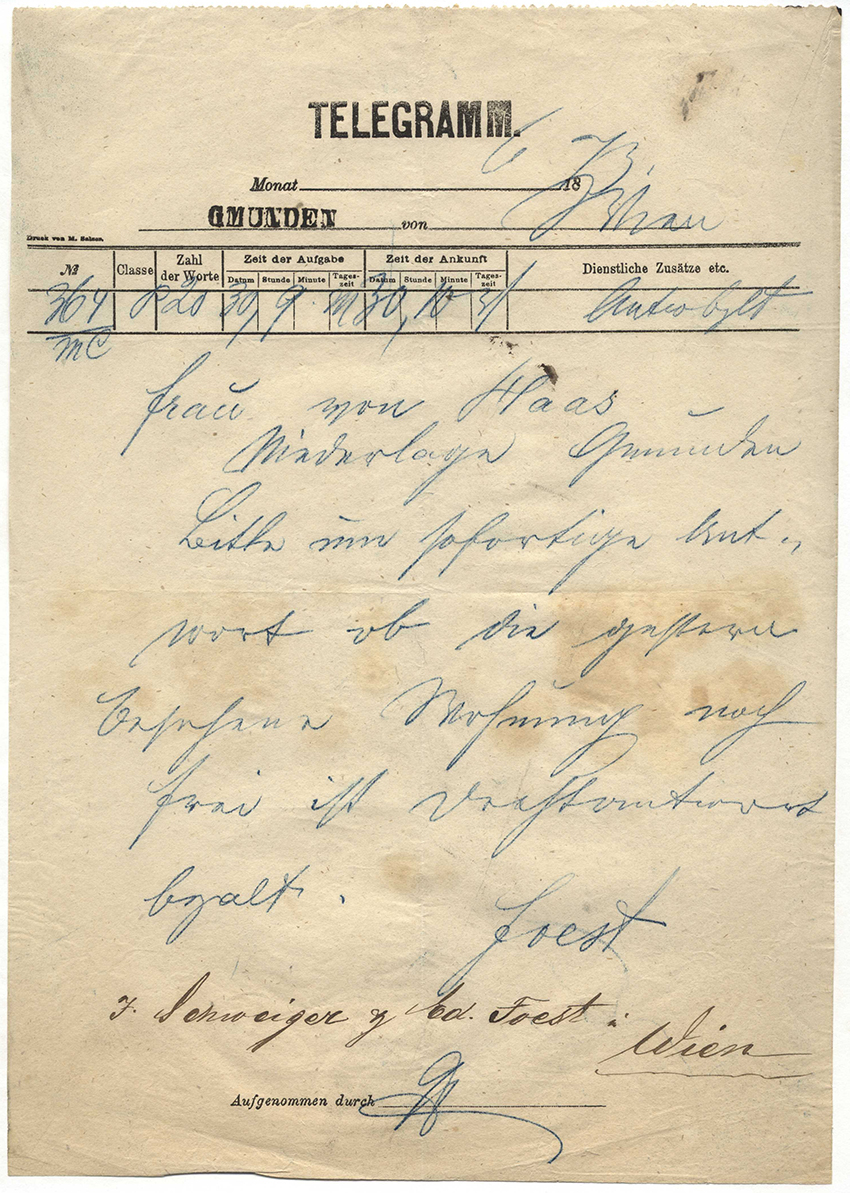 TELEGRAMM.
Monat 6 18 73
GMUNDEN von Wien
Druck von M. Salzer.
№ Classe Zahl der Worte Zeit der Aufgabe Zeit der Ankunft Dienstliche Zusätze etc.
Datum Stunde Minute Tages-zeit Datum Stunde Minute Tages-zeit
364 P 20 30, 9 M 30, 10 Antw bzlt
mC
Frau von Haas
Niederlage Gmunden
Bitte um sofortige Ant-
wort ob die gestern
besehene Wohnung noch
frei ist Drahtantwort
bzalt.
Foest
F. Schweiger z Ed. Foest.
Wien
Aufgenommen durch